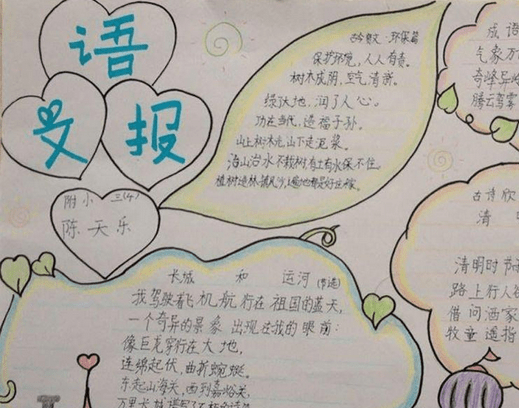 语
文 报
附小 三(4)
陈天乐
古今贤文·环保篇
保护环境，人人有责。
树木成荫，空气清新。
绿沃大地，润了人心。
功在当代，造福子孙。
山上树木光，山下走泥浆。
治山治水不栽树，有土有水保不住。
植树造林，挡风沙，遍地都是好庄稼。
长城 和 运河（节选）
我驾驶着飞机航行在祖国的蓝天，
一个奇异的景象出现在我的眼前：
像巨龙穿行在大地，
连绵起伏，曲折蜿蜒。
东起山海关，西到嘉峪关，
万里长城
成语
气象万
奇峰异
腾云驾雾
古诗欣
清
清明时节雨
路上行人
借问酒家
牧童遥指